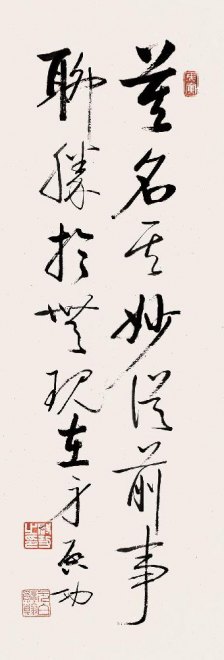 莫名其妙從前事
聊勝於無現在身啟功